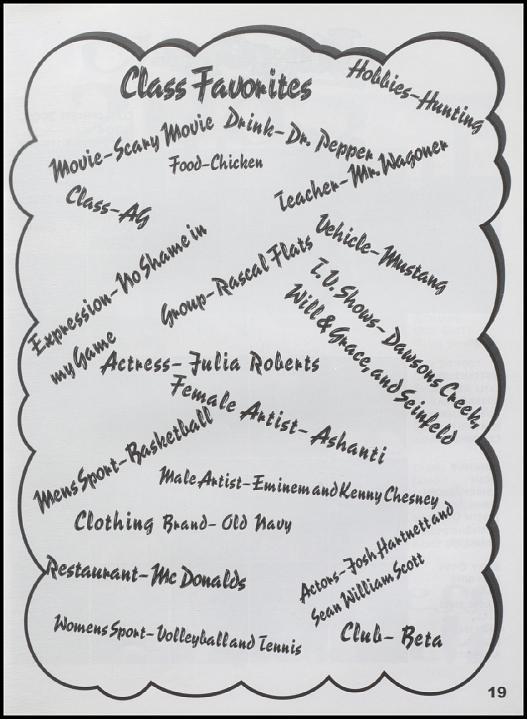 Class Favorites
Hobbies-Hunting
Movie-Scary Movie
Drink-Dr. Pepper
Food-Chicken
Teacher-Mr. Wagoner
Class-AG
Vehicle-Mustang
Expression-No Shame in
my Game
Group-Rascal Flats
T.V. Shows-Dawsons Creek,
Will & Grace, and Seinfeld
Actress-Julia Roberts
Female Artist-Ashanti
Mens Sport-Basketball
Male Artist-Eminem and Kenny Chesney
Clothing Brand-Old Navy
Actors-Josh Hartnett and
Sean William Scott
Restaurant-Mc Donalds
Womens Sport-Volleyball and Tennis
Club-Beta
19